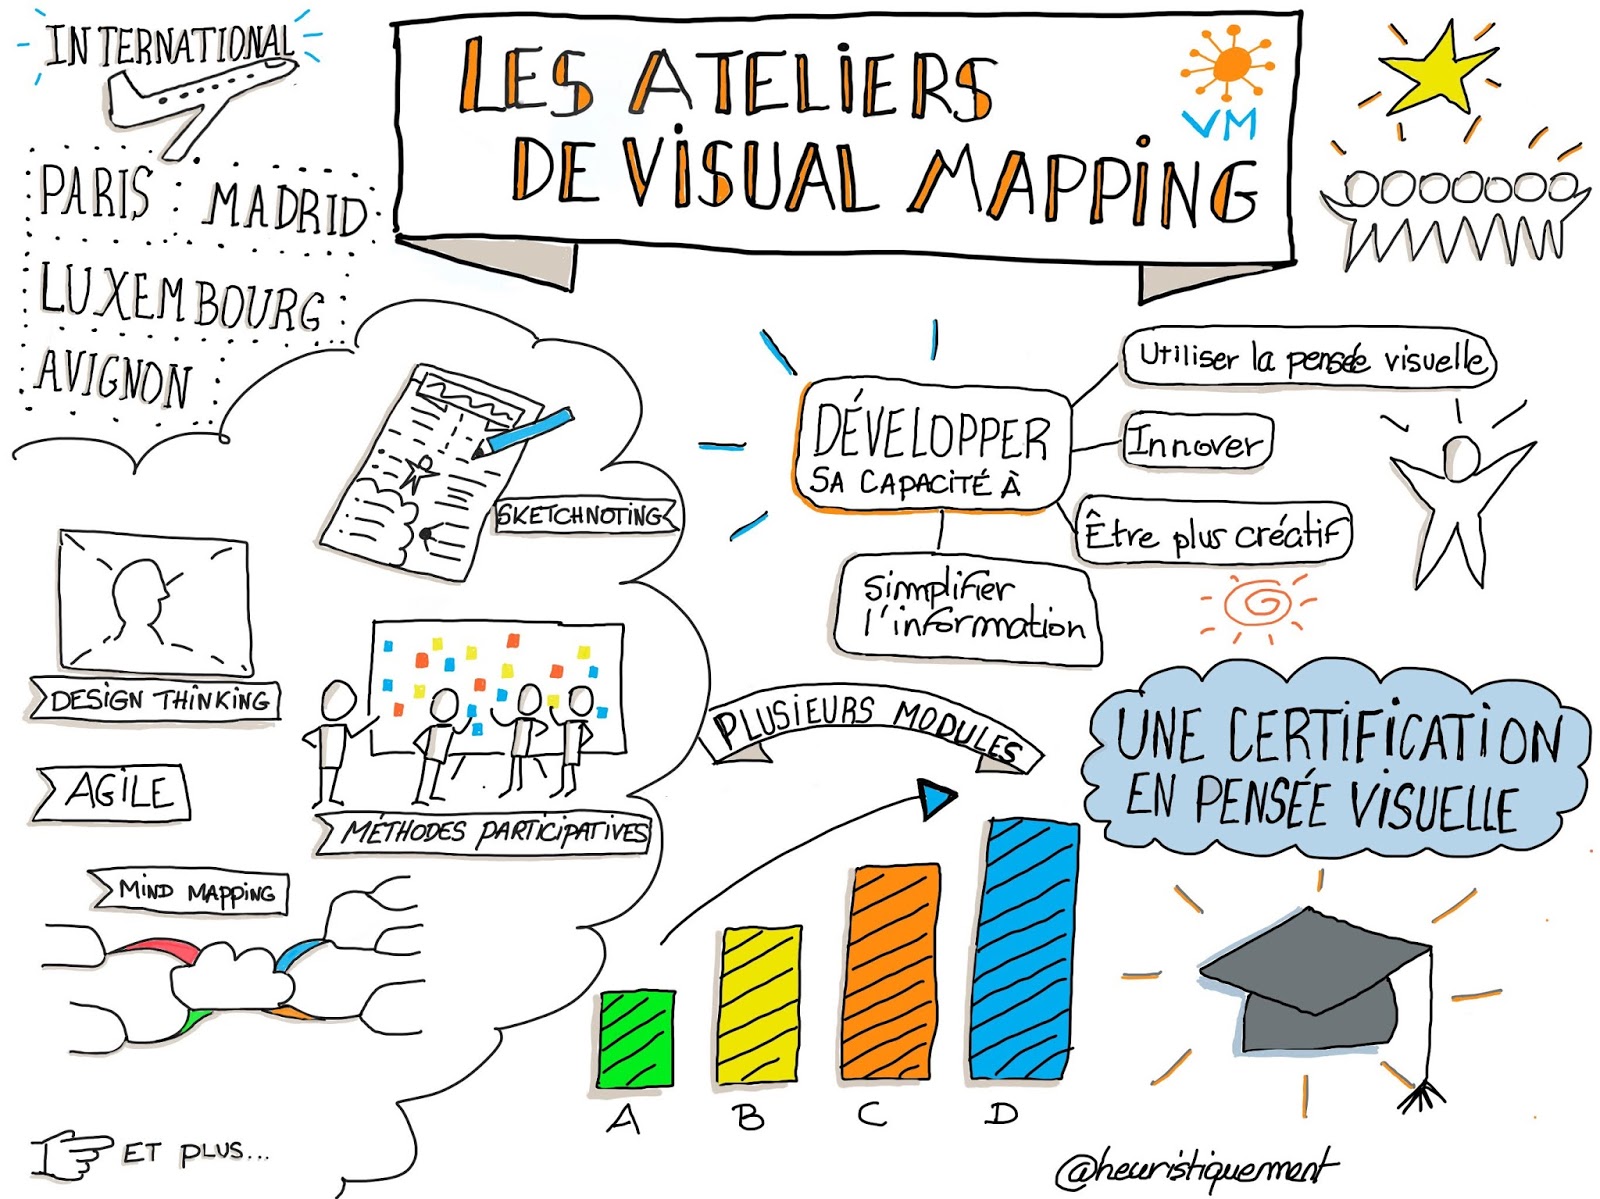 INTERNATIONAL
PARIS
MADRID
LUXEMBOURG
AVIGNON
LES ATELIERS
DE VISUAL MAPPING
VM
DÉVELOPPER
SA CAPACITÉ À
Utiliser la pensée visuelle
Innover
Être plus créatif
Simplifier
l'information
SKETCHNOTING
DESIGN THINKING
AGILE
MÉTHODES PARTICIPATIVES
MIND MAPPING
ET PLUS...
PLUSIEURS MODULES
A
B
C
D
UNE CERTIFICATION
EN PENSÉE VISUELLE
@heuristiquement